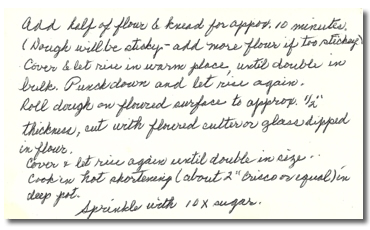 Add half of flour & knead for approx. 10 minutes.
(Dough will be sticky - add more flour if too stickey)
Cover & let rise in warm place, until double in
bulk. Punch down and let rise again.
Roll dough on floured surface to approx. 1/2"
thickness, cut with floured cutter or glass dipped
in flour.
Cover & let rise again until double in size..
Cook in hot shortening (about 2" Crisco or equal) in
deep pot.
Sprinkle with 10X sugar.